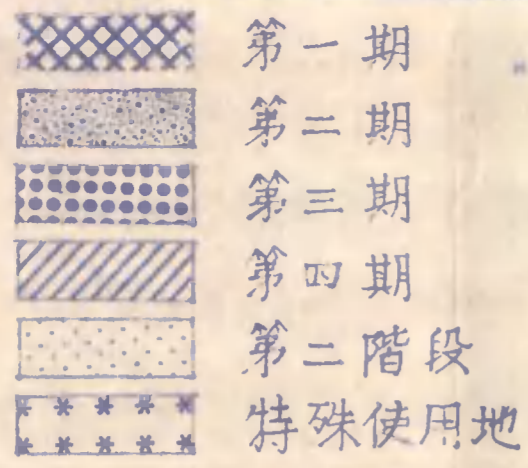 第一期
第二期
第三期
第四期
第二階段
特殊使用地